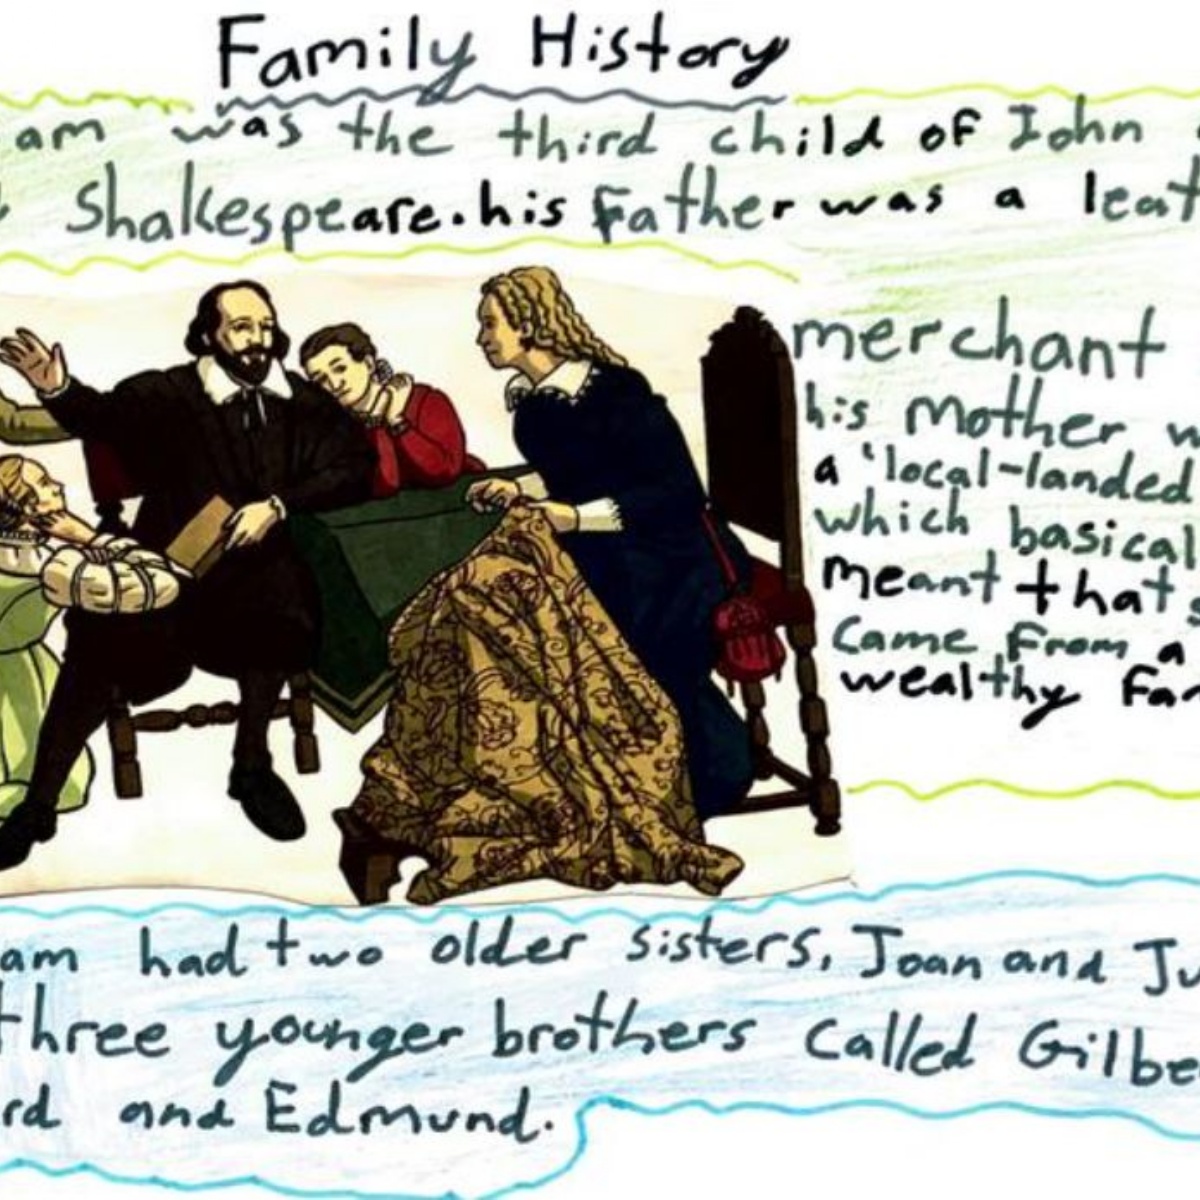 Family History
am was the third child of John
Shakespeare. his Father was a leat
merchant
his mother w
a 'local-landed
which basical
meant that s
came from a
wealthy Fam
am had two older sisters, Joan and Ju
three younger brothers called Gilbe
rd and Edmund.